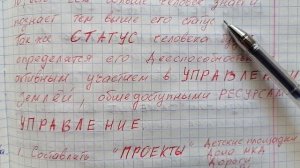 человек знает и
познает тем выше его статус
Также СТАТУС человека
определяется его Дееспособностью
активным участием в УПРАВЛЕНИИ
Землёй, общедоступными РЕСУРСАМИ
УПРАВЛЕНИЕ.
1. Составлять "ПРОЕКТЫ" Детские площадки
Дома МКД
Дороги